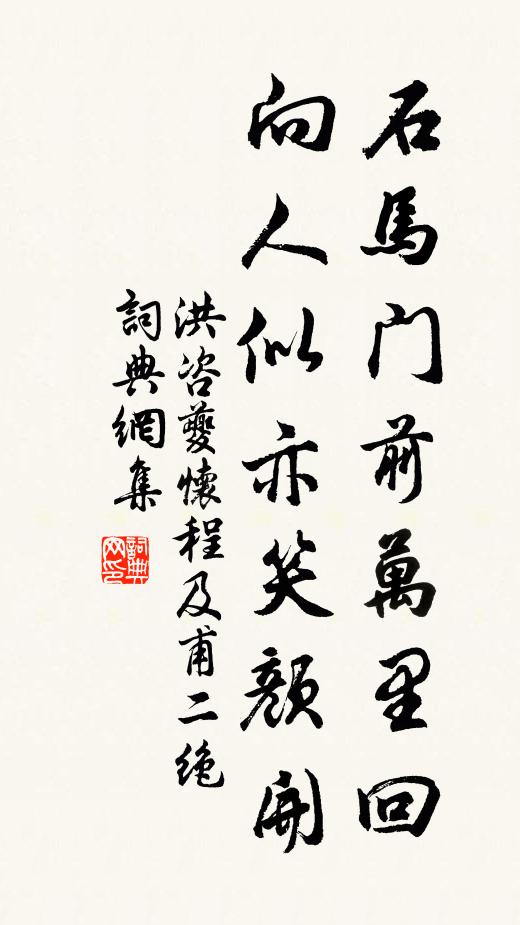 石馬門前萬里回
向人似亦笑顏開
洪咨夔懷程及甫二絶
詞典網集
詞典
网印